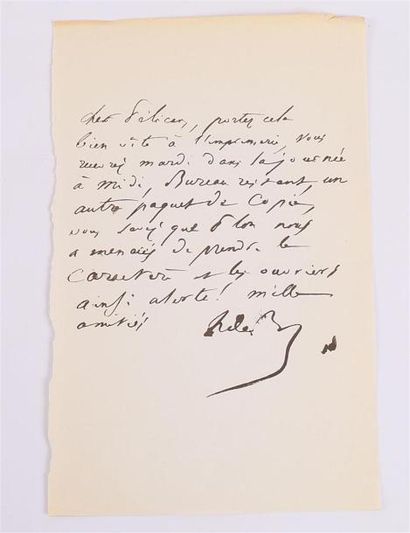 cher Pélican, portez cela
bien vite à l'imprimerie, vous
recevrez mardi dans la journée
à midi, Bureau restant, un
autre paquet de copie,
vous savez que Plon nous
a menacés de prendre le
caractère et les ouvriers
ainsi alerte! mille
amitiés